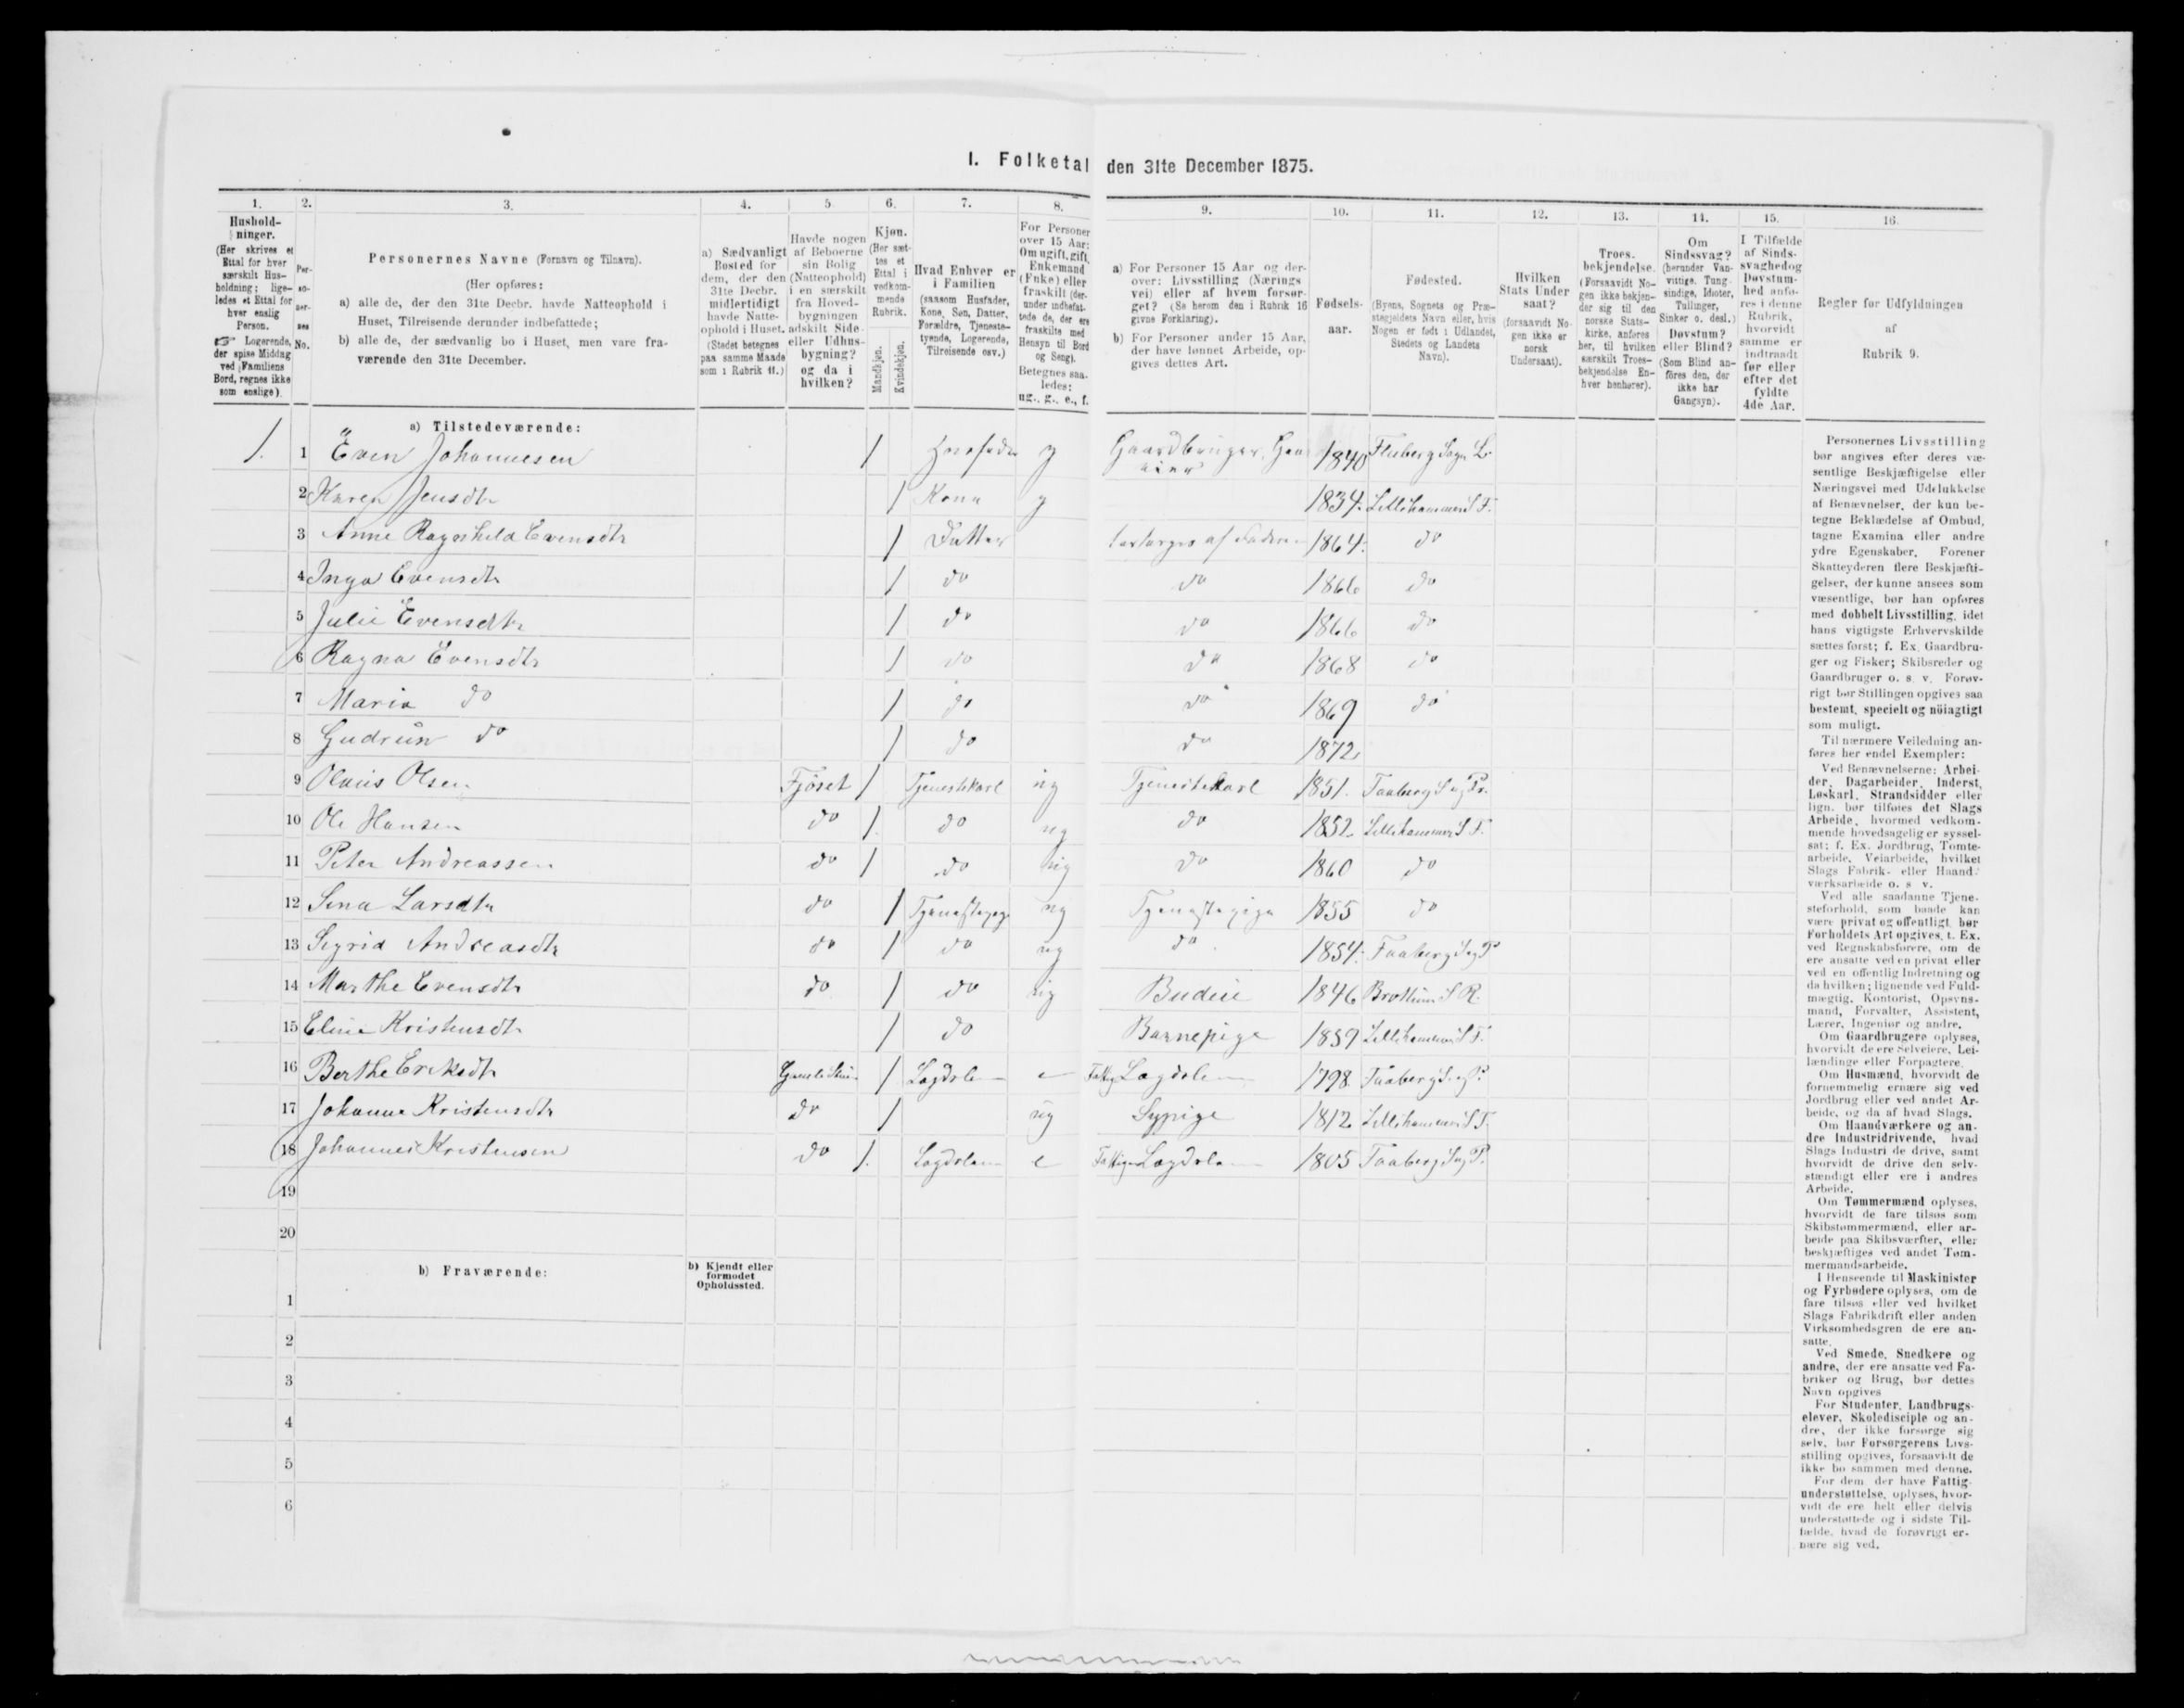 I. Folketal den 31te December 1875.
1. 2. 3. 4. 5 6. 7. 8. 9. 10. 11. 12. 13. 14. 15. 16.
Hushold-
ninger.
(Her skrives et
Ettal for hver
særskilt Hus-
holdning; lige-
ledes et Ettal for
hver enslig
Person.
☞ Logerende,
der spise Middag
ved Familiens
Bord, regnes ikke
som enslige).
Per-
so-
ner-
nes
No.
Personernes Navne (Fornavn og Tilnavn).
(Her opføres:
a) alle de, der den 31te Decbr. havde Natteophold i
Huset, Tilreisende derunder indbefattede;
b) alle de, der sædvanlig bo i Huset, men vare fra-
værende den 31te December.
a) Sædvanligt
Bosted for
dem, der den
31te Decbr.
midlertidigt
havde Natte-
ophold i Huset.
(Stedet betegnes
paa samme Maade
som i Rubrik 11.)
Havde nogen
af Beboerne
sin Bolig
(Natteophold)
i en særskilt
fra Hoved-
bygningen
adskilt Side-
eller Udhus-
bygning?
og da i
hvilken?
Kjøn.
(Her sæt-
tes et
Ettal i
vedkom-
mende
Rubrik.
Mandkjøn.
Kvindekjøn.
Hvad Enhver er
i Familien
(saasom Husfader,
Kone, Søn, Datter,
Forældre, Tjeneste-
tyende, Logerende,
Tilreisende osv.)
For Personer
over 15 Aar:
Om ugift, gift,
Enkemand
(Enke) eller
fraskilt (der-
under indbefat-
tede de, der ere
fraskilte med
Hensyn til Bord
og Seng).
Betegnes saa-
ledes:
ug., g., e., f.
a) For Personer 15 Aar og der-
over: Livsstilling (Nærings
vei) eller af hvem forsør-
get? (Se herom den i Rubrik 16
givne Forklaring).
b) For Personer under 15 Aar,
der have lønnet Arbeide, op-
gives dettes Art.
Fødsels-
aar.
Fødested.
(Byens, Sognets og Præ-
stegjeldets Navn eller, hvis
Nogen er født i Udlandet,
Stedets og Landets
Navn).
Hvilken
Stats Under
saat?
(forsaavidt No-
gen ikke er
norsk
Undersaat).
Troes-
bekjendelse.
(Forsaavidt No-
gen ikke bekjen-
der sig til den
norske Stats-
kirke, anføres
her, til hvilken
særskilt Troes-
bekjendelse En-
hver henhører).
Om
Sindssvag?
(herunder Van-
vittige, Tung-
sindige, Idioter,
Tullinger,
Sinker o. desl.)
Døvstum?
eller Blind?
(Som Blind an-
føres den, der
ikke har
Gangsyn).
I Tilfælde
af Sinds-
svaghed og
Døvstum-
hed anfø-
res i denne
Rubrik,
hvorvidt
samme er
indtraadt
før eller
efter det
fyldte
4de Aar.
Regler for Udfyldningen
af
Rubrik 9.
a) Tilstedeværende:
1. 1 Even Johannesen 1 Husfader g Gaardbruger 1840
2 Karen Jensdtr 1 Kone g 1834. Lillehammer S F.
3 Anne Ragnhild Evensdtr 1 Datter forsørges af Faderen 1864. do
4 Inga Evensdtr 1 do do 1866 do
5 Julie Evensdtr 1 do do 1866 do
6 Ragna Evensdtr 1 do do 1868 do
7 Maria do 1 do do 1869 do
8 Gudrun do 1 do do 1872
9 Olaus Olsen Fjöset 1 Tjenestekarl ug Tjenestekarl 1851. Faaberg S og Pr.
10 Ole Hansen do 1. do ug do 1852 Lillehammer S F.
11 Peter Andreassen do 1 do ug do 1860 do
12 Sina Larsdtr do 1 Tjenestepige ug Tjenestepige 1855 do
13 Sigrid Andreasdtr do 1 do ug do 1854. Faaberg S og P
14 Marthe Evensdtr do 1 do ug Budeie 1846 Brøttum S R.
15 Eline Kristensdtr 1 do Barnepige 1859 Lillehammer S F.
16 Berthe Eriksdtr 1 Lægdslem e Fattig Lægdslem 1798 Faaberg S og P.
17 Johanne Kristensdtr do 1 ug Sypige 1812 Lillehammer S F.
18 Johannes Kristensen do 1. Lægdslem e Fattig Lægdslem 1805 Faaberg S og P.
19
20
b) Fraværende:
b) Kjendt eller
formodet
Opholdssted.
1
2
3
4
5
6
Personernes Livsstilling
bør angives efter deres væ-
sentlige Beskjæftigelse eller
Næringsvei med Udelukkelse
af Benævnelser, der kun be-
tegne Beklædelse af Ombud,
tagne Examina eller andre
ydre Egenskaber. Forener
Skatteyderen flere Beskjæfti-
gelser, der kunne ansees som
væsentlige, bør han opføres
med dobbelt Livsstilling, idet
hans vigtigste Erhvervskilde
sættes først; f. Ex. Gaardbru-
ger og Fisker; Skibsreder og
Gaardbruger o. s. v. Forøv-
rigt bør Stillingen opgives saa
bestemt, specielt og nöiagtigt
som muligt.
Til nærmere Veiledning an-
føres her endel Exempler:
Ved Benævnelserne: Arbei-
der, Dagarbeider, Inderst,
Løskarl, Strandsidder eller
lign. bør tilføies det Slags
Arbeide, hvormed vedkom-
mende hovedsagelig er syssel-
sat; f. Ex. Jordbrug, Tomte-
arbeide, Veiarbeide, hvilket
Slags Fabrik- eller Haand-
værksarbeide o. s v.
Ved alle saadanne Tjene-
steforhold, som baade kan
være privat og offentligt, bør
Forholdets Art opgives, t. Ex.
ved Regnskabsførere, om de
ere ansatte ved en privat eller
ved en offentlig Indretning og
da hvilken; lignende ved Fuld-
mægtig, Kontorist, Opsyns-
mand, Forvalter, Assistent,
Lærer, Ingeniør og andre.
Om Gaardbrugere oplyses,
hvorvidt de ere Selveiere, Lei-
lændinge eller Forpagtere.
Om Husmænd, hvorvidt de
fornemmelig ernære sig ved
Jordbrug eller ved andet Ar-
beide, og da af hvad Slags.
Om Haandværkere og an-
dre Industridrivende, hvad
Slags Industri de drive, samt
hvorvidt de drive den selv-
stændigt eller ere i andres
Arbeide.
Om Tømmermænd oplyses,
hvorvidt de fare tilsøs som
Skibstømmermænd, eller ar-
beide paa Skibsværfter, eller
beskjæftiges ved andet Tøm-
mermandsarbeide.
I Henseende til Maskinister
og Fyrbødere oplyses, om de
fare tilsøs eller ved hvilket
Slags Fabrikdrift eller anden
Virksomhedsgren de ere an-
satte.
Ved Smede, Snedkere og
andre, der ere ansatte ved Fa-
briker og Brug, bør dettes
Navn opgives
For Studenter, Landbrugs-
elever, Skoledisciple og an-
dre, der ikke forsørge sig
selv, bør Forsørgerens Livs-
stilling opgives, forsaavidt de
ikke bo sammen med denne.
For dem der have Fattig-
understøttelse, oplyses, hvor-
vidt de ere helt eller delvis
understøttede og i sidste Til-
fælde, hvad de forøvrigt er-
nære sig ved.